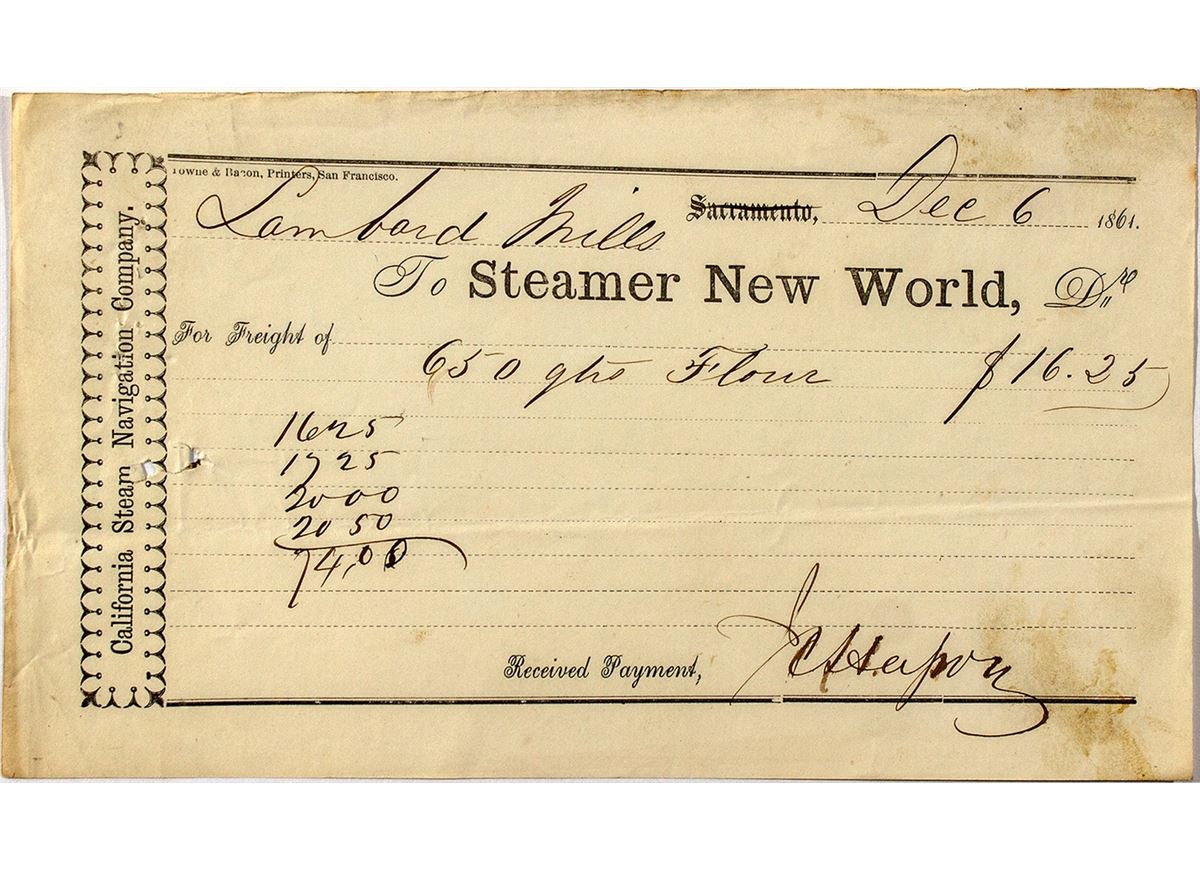 Towne & Bacon, Printers, San Francisco.
Sacramento, Dec 6 1861.
Lambard Mills
To Steamer New World, Dr
For Freight of
650 qks Flour $16.25
1625
1725
2000
2050
74,00
Received Payment,
California Steam Navigation Company.